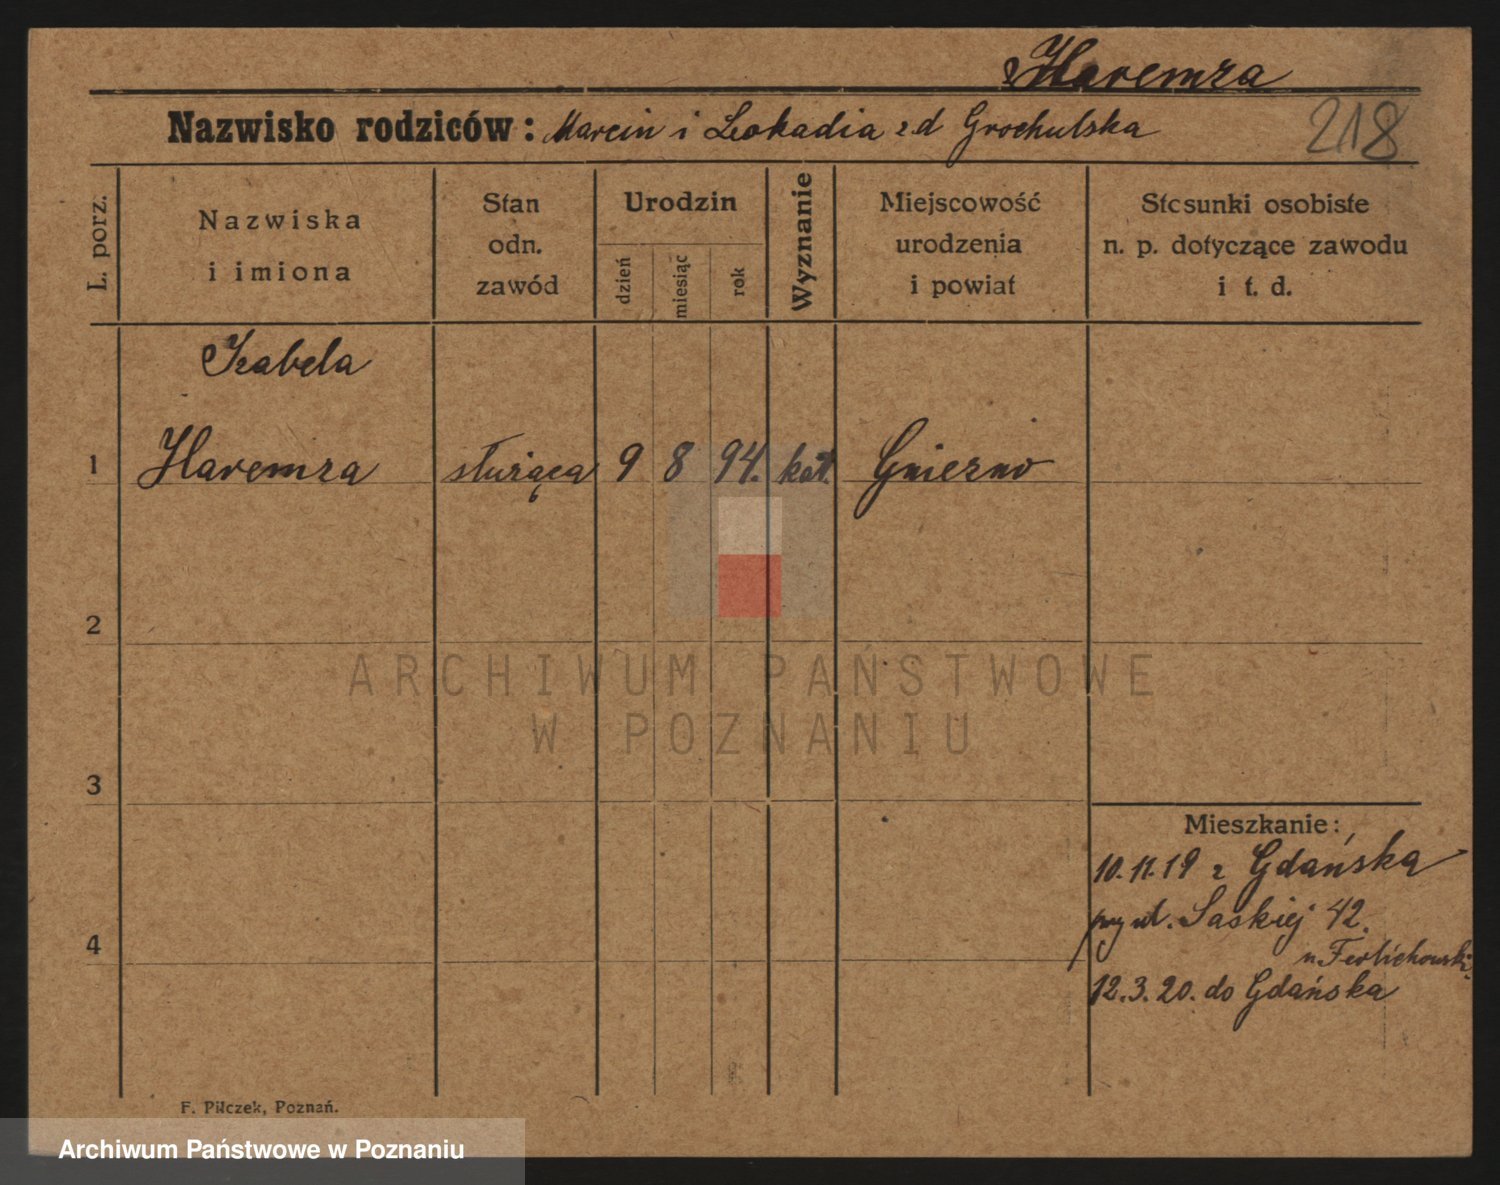 Haremza
Nazwisko rodziców: Marcin i Leokadia zd Grochulska
218
L. porz.
Nazwiska
i imiona
Stan
odn.
zawód
Urodzin
dzień
miesiąc
rok
Wyznanie
Miejscowość
urodzenia
i powiat
Stosunki osobiste
n. p. dotyczące zawodu
i t. d.
Izabela
1 Haremza służąca 9 8 94. kat. Gniezno
2
3
4
Mieszkanie:
10.11.19 z Gdańska
przy ul. Saskiej 42.
12.3.20. do Gdańska
F. Pilczek, Poznań.
ARCHIWUM PAŃSTWOWE
W POZNANIU
Archiwum Państwowe w Poznaniu